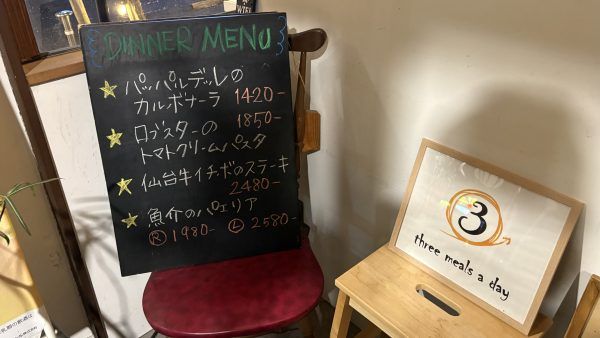 DINNER MENU
パッパルデッレの
カルボナーラ 1420-
ロブスターの 1850-
トマトクリームパスタ
仙台牛イチボのステーキ
2480-
魚介のパエリア
Ⓡ1980- Ⓛ2580-
3
three meals a day